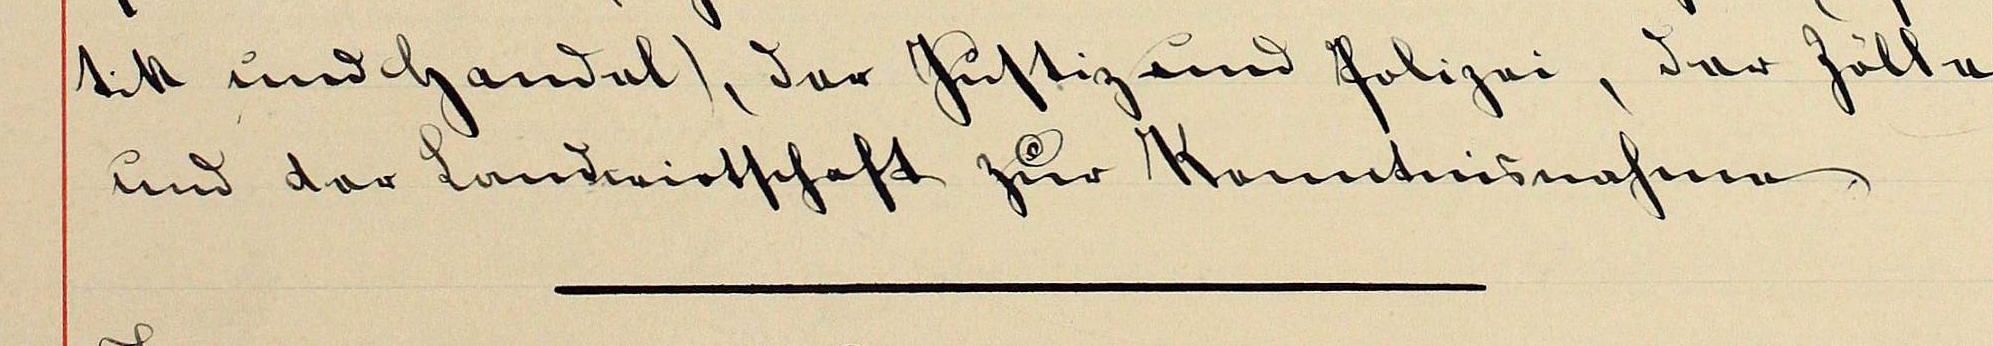 tik und Handel), der Justiz und Polizei, der Zölle
und der Landwirtschaft zur Kenntnisnahme